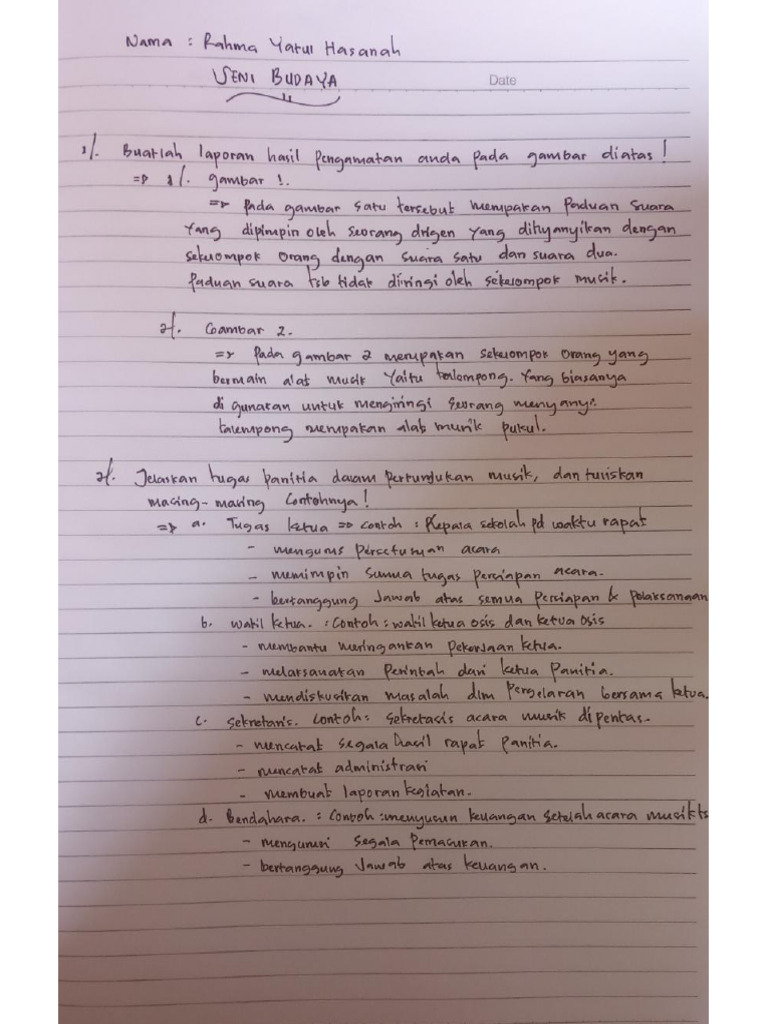 Nama : Rahma Yatul Hasanah
SENI BUDAYA
Date
1/. Buatlah laporan hasil pengamatan anda pada gambar diatas !
=> 1/. gambar 1.
=> Pada gambar satu tersebut merupakan Paduan Suara
Yang dipimpin oleh seorang drigen yang dinyanyikan dengan
sekelompok orang dengan suara satu dan suara dua.
Paduan suara tsb tidak diiringi oleh sekelompok musik.
2/. Gambar 2.
=> Pada gambar 2 merupakan sekelompok orang yang
bermain alat musik Yaitu talempong. Yang biasanya
di gunakan untuk mengiringi seorang menyanyi.
talempong merupakan alat musik pukul.
2/. Jelaskan tugas panitia dalam pertunjukan musik, dan tuliskan
masing-masing Contohnya !
=> a. Tugas ketua => contoh : Kepala sekolah pd waktu rapat
- mengurus persetujuan acara
- memimpin semua tugas persiapan acara.
- bertanggung Jawab atas semua persiapan & pelaksanaan
b. wakil ketua. : Contoh : wakil ketua osis dan ketua osis
- membantu meringankan pekerjaan ketua.
- melaksanakan perintah dari ketua panitia.
- mendiskusikan masalah dlm pergelaran bersama ketua.
c. sekretaris. Contoh : sekretasis acara musik dipentas.
- mencatat segala hasil rapat panitia.
- mencatat administrasi
- membuat laporan kegiatan.
d. Bendahara. : Contoh : menyusun keuangan setelah acara musik ts
- mengurusi segala pemasukan.
- bertanggung Jawab atas keuangan.